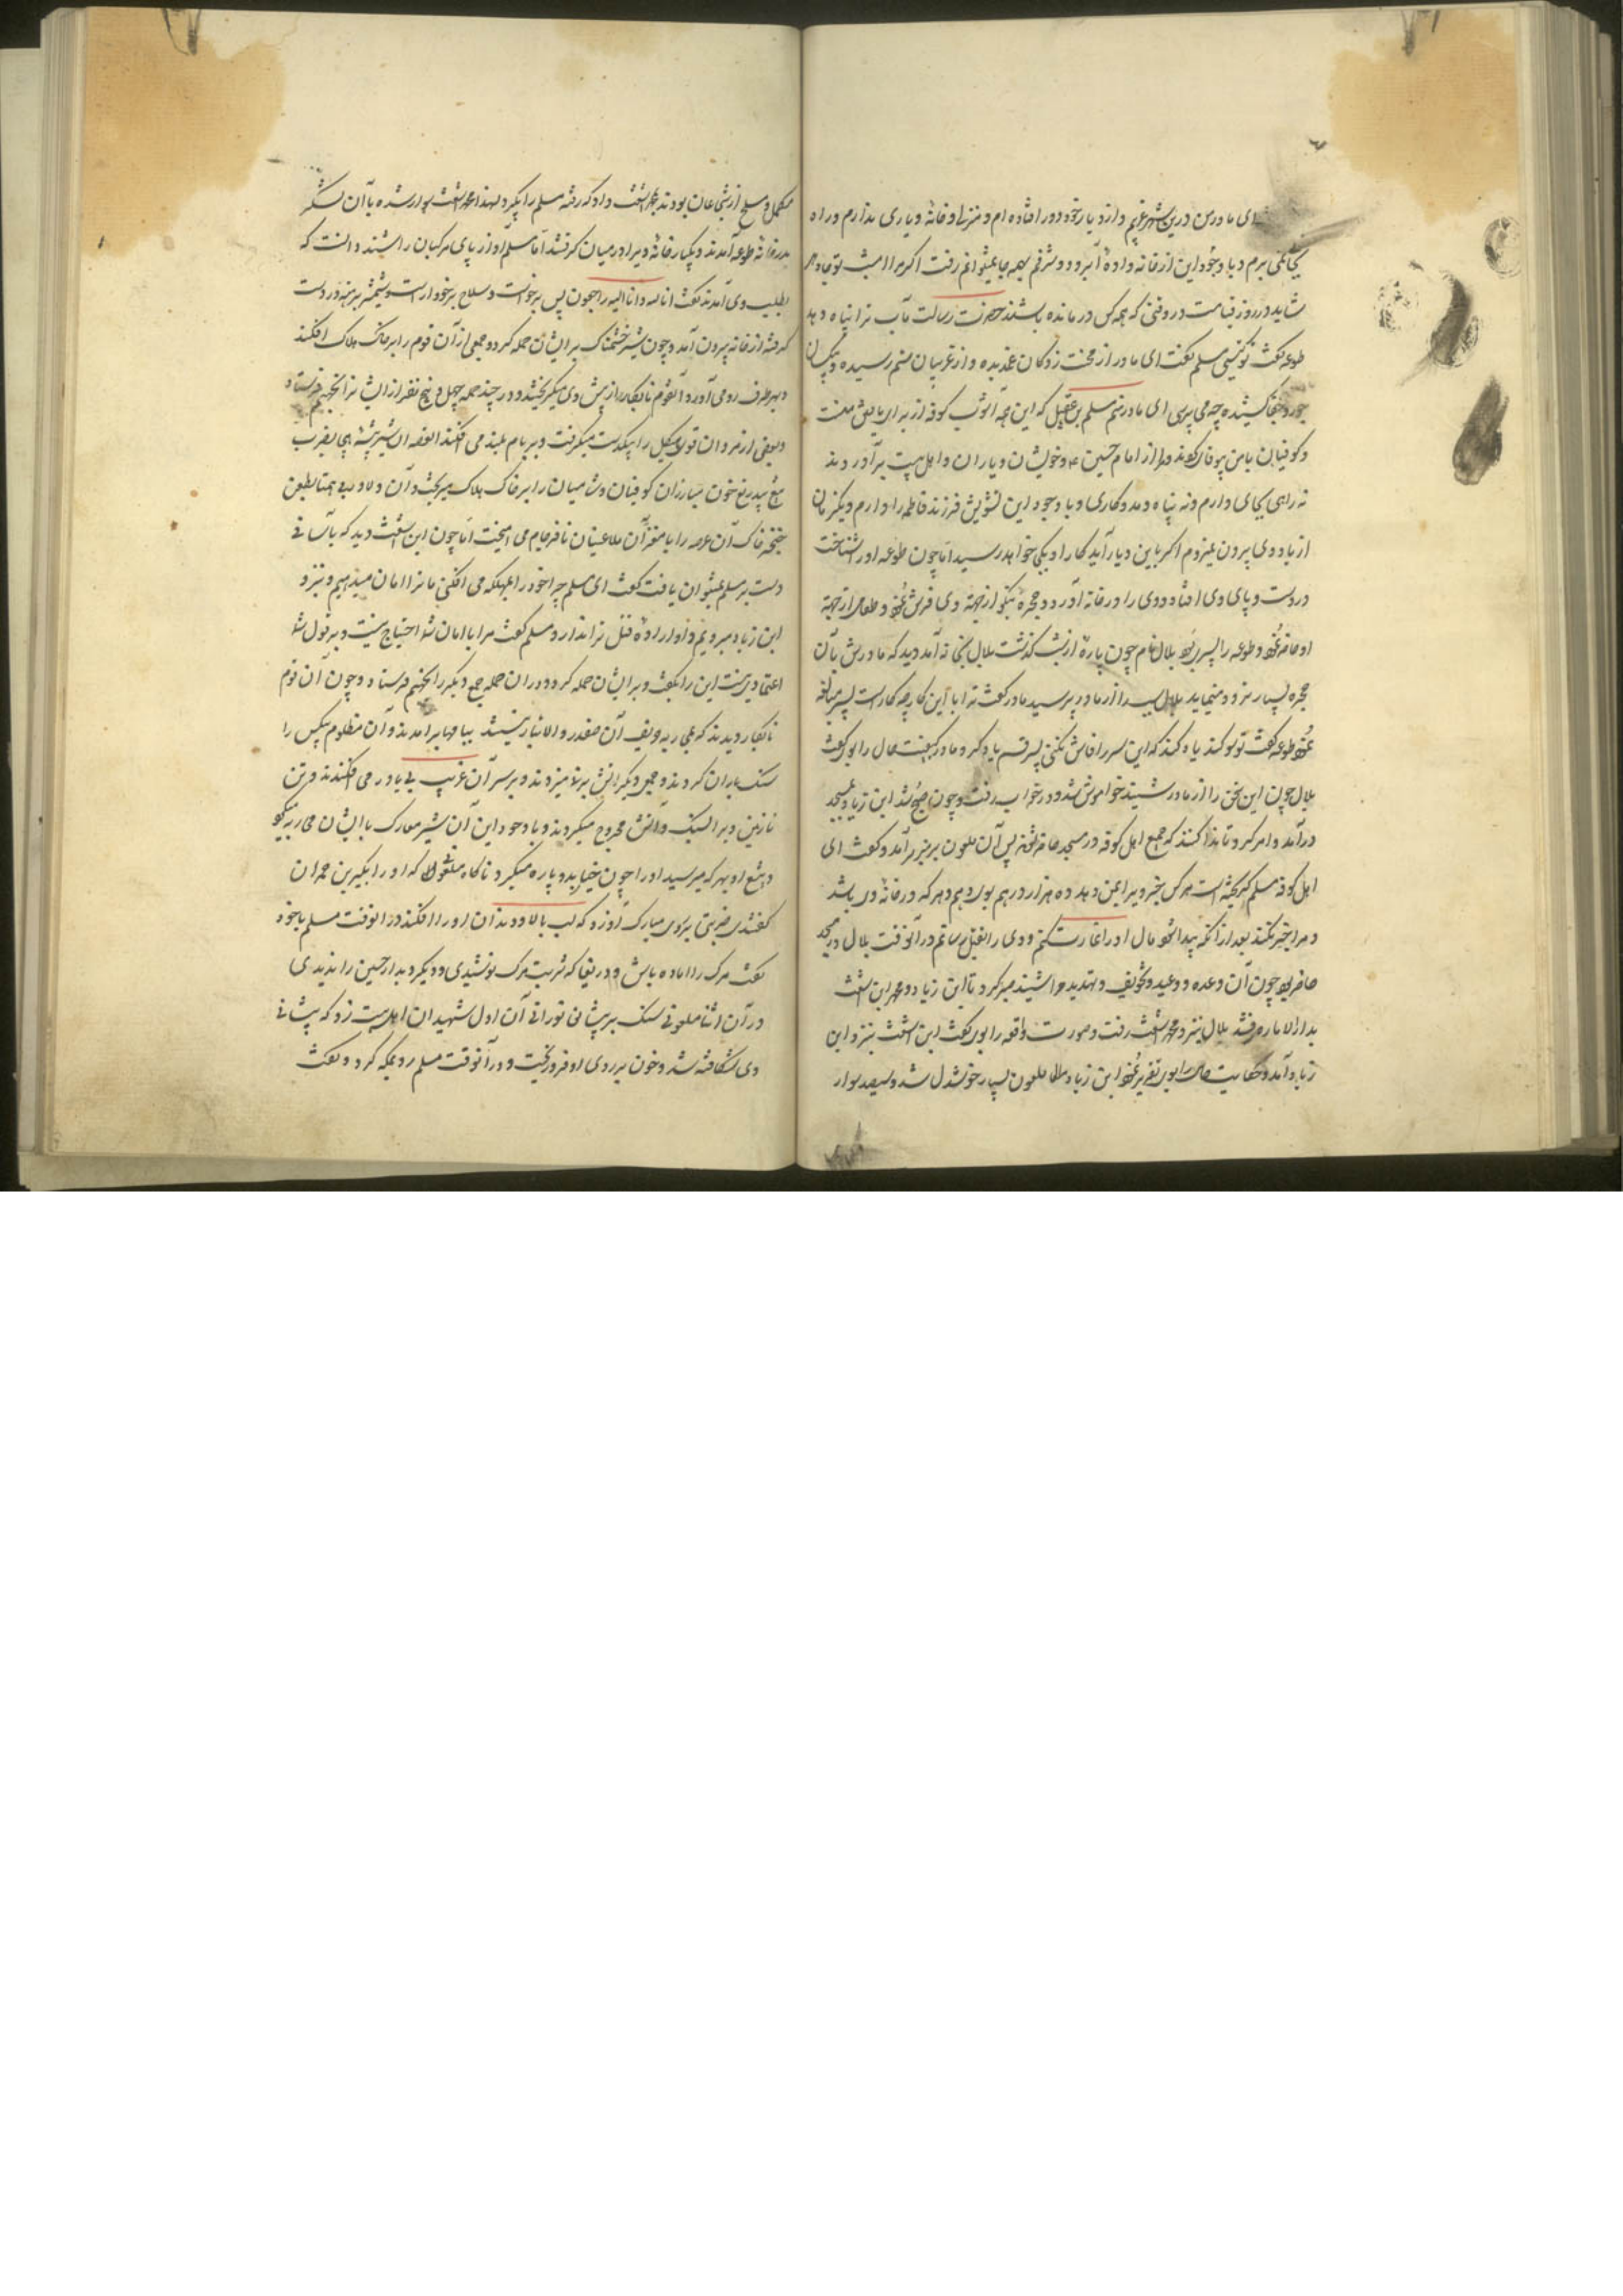 ای مادر من درین شهر غریبم و از دیار خود دور افتاده ام و منزل و خانهٔ و یاری ندارم و راه
بجائی نمی برم و با وجود این از خانه و آبرو و شرفم بهمه جا نمیتوانم رفت اکر مرا امشب
شاید در روز قیامت در وقتی که همه کس درمانده باشند حضرت رسالت مآب ترا پناه دهد
طوعه کفت تو کیستی مسلم کفت ای مادر از محنت زدکان غمدیده و از غریبان ستم رسیده و بیکسان
جور و جفا کشیده چه می پرسی ای مادر منم مسلم بن عقیل که این همه آشوب کوفه از برای من است
و کوفیان با من بیوفائی کردند و مرا از امام حسین و خویشان و یاران و اهل بیت برآوردند
نه راهی بجای دارم و نه پناه و مددکاری و با وجود این تشویش فرزند فاطمه را دارم و یکزمان
از یاد وی بیرون نمیروم اکر باین دیار آید کار او بکجا خواهد رسید اما چون طوعه او را شناخت
در دست و پای وی افتاد و وی را در خانه آورد و حجرهٔ نیکو از جهة وی فرش نمود و طعام از جهة
او حاضر نمود و طوعه را پسری بود بلال نام چون پارهٔ از شب کذشت بلال بخانه آمد دید که مادرش بآن
حجره بسیار تردد مینماید بلال از مادر پرسید مادر کفت ترا با این کار چه کار است پسر مبالغه
نمود طوعه کفت تو سوکند یاد کن که این سر را فاش نکنی پسر قسم یاد کرد مادر کیفیت حال را بوی کفت
بلال چون این سخن را از مادر شنید خواموش شد و در خواب رفت و چون صبح شد ابن زیاد بمسجد
درآمد و امر کرد تا ندا کنند که جمیع اهل کوفه در مسجد حاضر شوند پس آن ملعون بر منبر برآمد و کفت ای
اهل کوفه مسلم کریخته است هر کس خبر ویرا بمن دهد ده هزار درهم بوی دهم و هر که در خانهٔ وی باشد
و مرا خبر نکند بعد از آنکه پیدا شود مال او را غارت کنم و وی را بقتل رسانم در آنوقت بلال در مسجد
حاضر بود چون آن وعده و وعید و تخویف و تهدید را شنید صبر کرد تا ابن زیاد و محمد ابن اشعث
بدارالاماره رفتند بلال نزد محمد اشعث رفت و صورت واقعه را بوی کفت ابن اشعث نزد ابن
زیاد آمد و حکایت حال را بوی تقریر نمود ابن زیاد ملعون بسیار خوشدل شد و سیصد سوار
مکمل و مسلح از شجاعان بودند بمحمد اشعث داد که رفته مسلم را بیکرد لهذا محمد اشعث سوار شده با آن لشکر
بدر خانه طوعه آمدند و یکبار خانهٔ ویرا در میان کرفتند اما مسلم آواز پای مرکبان را شنید دانست که
بطلب وی آمدند کفت انا لله و انا الیه راجعون پس برخواست و سلاح بر خود آراست و شمشیر برهنه در دست
کرفته از خانه بیرون آمد و چون شیر خشمناک بر ایشان حمله کرد و جمعی از آن قوم را بر خاک هلاک افکند
و بهر طرف رو می آورد آنقوم نابکار از پیش وی میکریختند و در چند حمله چهل و پنج نفر از ایشان را بجهنم فرستاد
و بعضی از مردان قوی هیکل را بیکدست میکرفت و بر بام بلند می افکند القصه آن شیر بیشهٔ بضرب
تیغ بیدریغ خون مبارزان کوفیان و شامیان را بر خاک هلاک میریخت و آن دلاور بی همتا بطعن
خنجر خاک آن عرصه را با مغز آن ملاعینان نافرجام می آمیخت اما چون ابن اشعث دید که بآسانی
دست بر مسلم نمیتوان یافت کفت ای مسلم چرا خود را بمهلکه می افکنی ما ترا امان میدهیم و نزد
ابن زیاد میرویم و او ارادهٔ قتل ترا ندارد مسلم کفت مرا با امان شما احتیاج نیست و بر قول شما
اعتماد نیست این را بکفت و بر ایشان حمله کرد و در آن حمله جمع دیکر را بجهنم فرستاد و چون آن قوم
نابکار دیدند که حریف آن صفدر والا نیستند ببامها برآمدند و آن مظلوم بیکس را
سنک باران کردند و جمعی دیکر آتش بر نی میزدند و بر سر آن غریب بی یاور می افکندند و تن
نازنین ویرا بسنک و آتش مجروح میکردند و با وجود این آن شیر معارک با ایشان محاربه میکرد
و تیغ او بهر که میرسید او را چون خیار بدو پاره میکرد ناکاه ملعونی که او را بکیر بن حمران
کفتندی ضربتی بروی مبارک او زد که لب بالا و دندان او را افکند در آنوقت مسلم با خود
کفت مرک را آماده باش و دریغا که شربت مرک نوشیدی و دیکر دیدار حسین را ندیدی
در آن اثنا ملعونی سنک بر پیشانی نورانی آن اول شهیدان اهلبیت زد که پیشانی
وی شکافته شد و خون بر روی او فرو ریخت و در آنوقت مسلم رو بمکه کرد و کفت